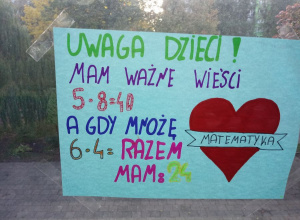 UWAGA DZIECI!
MAM WAŻNE WIEŚCI
5·8=40
A GDY MNOŻĘ
6·4= RAZEM
MAM: 24
MATEMATYKA